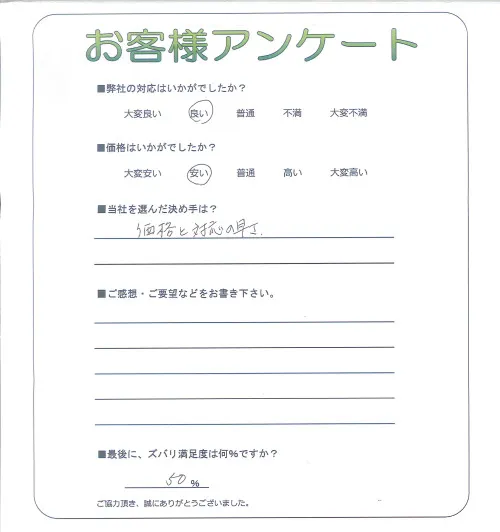 お客様アンケート
■弊社の対応はいかがでしたか？
大変良い 良い 普通 不満 大変不満
■価格はいかがでしたか？
大変安い 安い 普通 高い 大変高い
■当社を選んだ決め手は？
価格と対応の早さ.
■ご感想・ご要望などをお書き下さい。
■最後に、ズバリ満足度は何%ですか？
50 %
ご協力頂き、誠にありがとうございました。